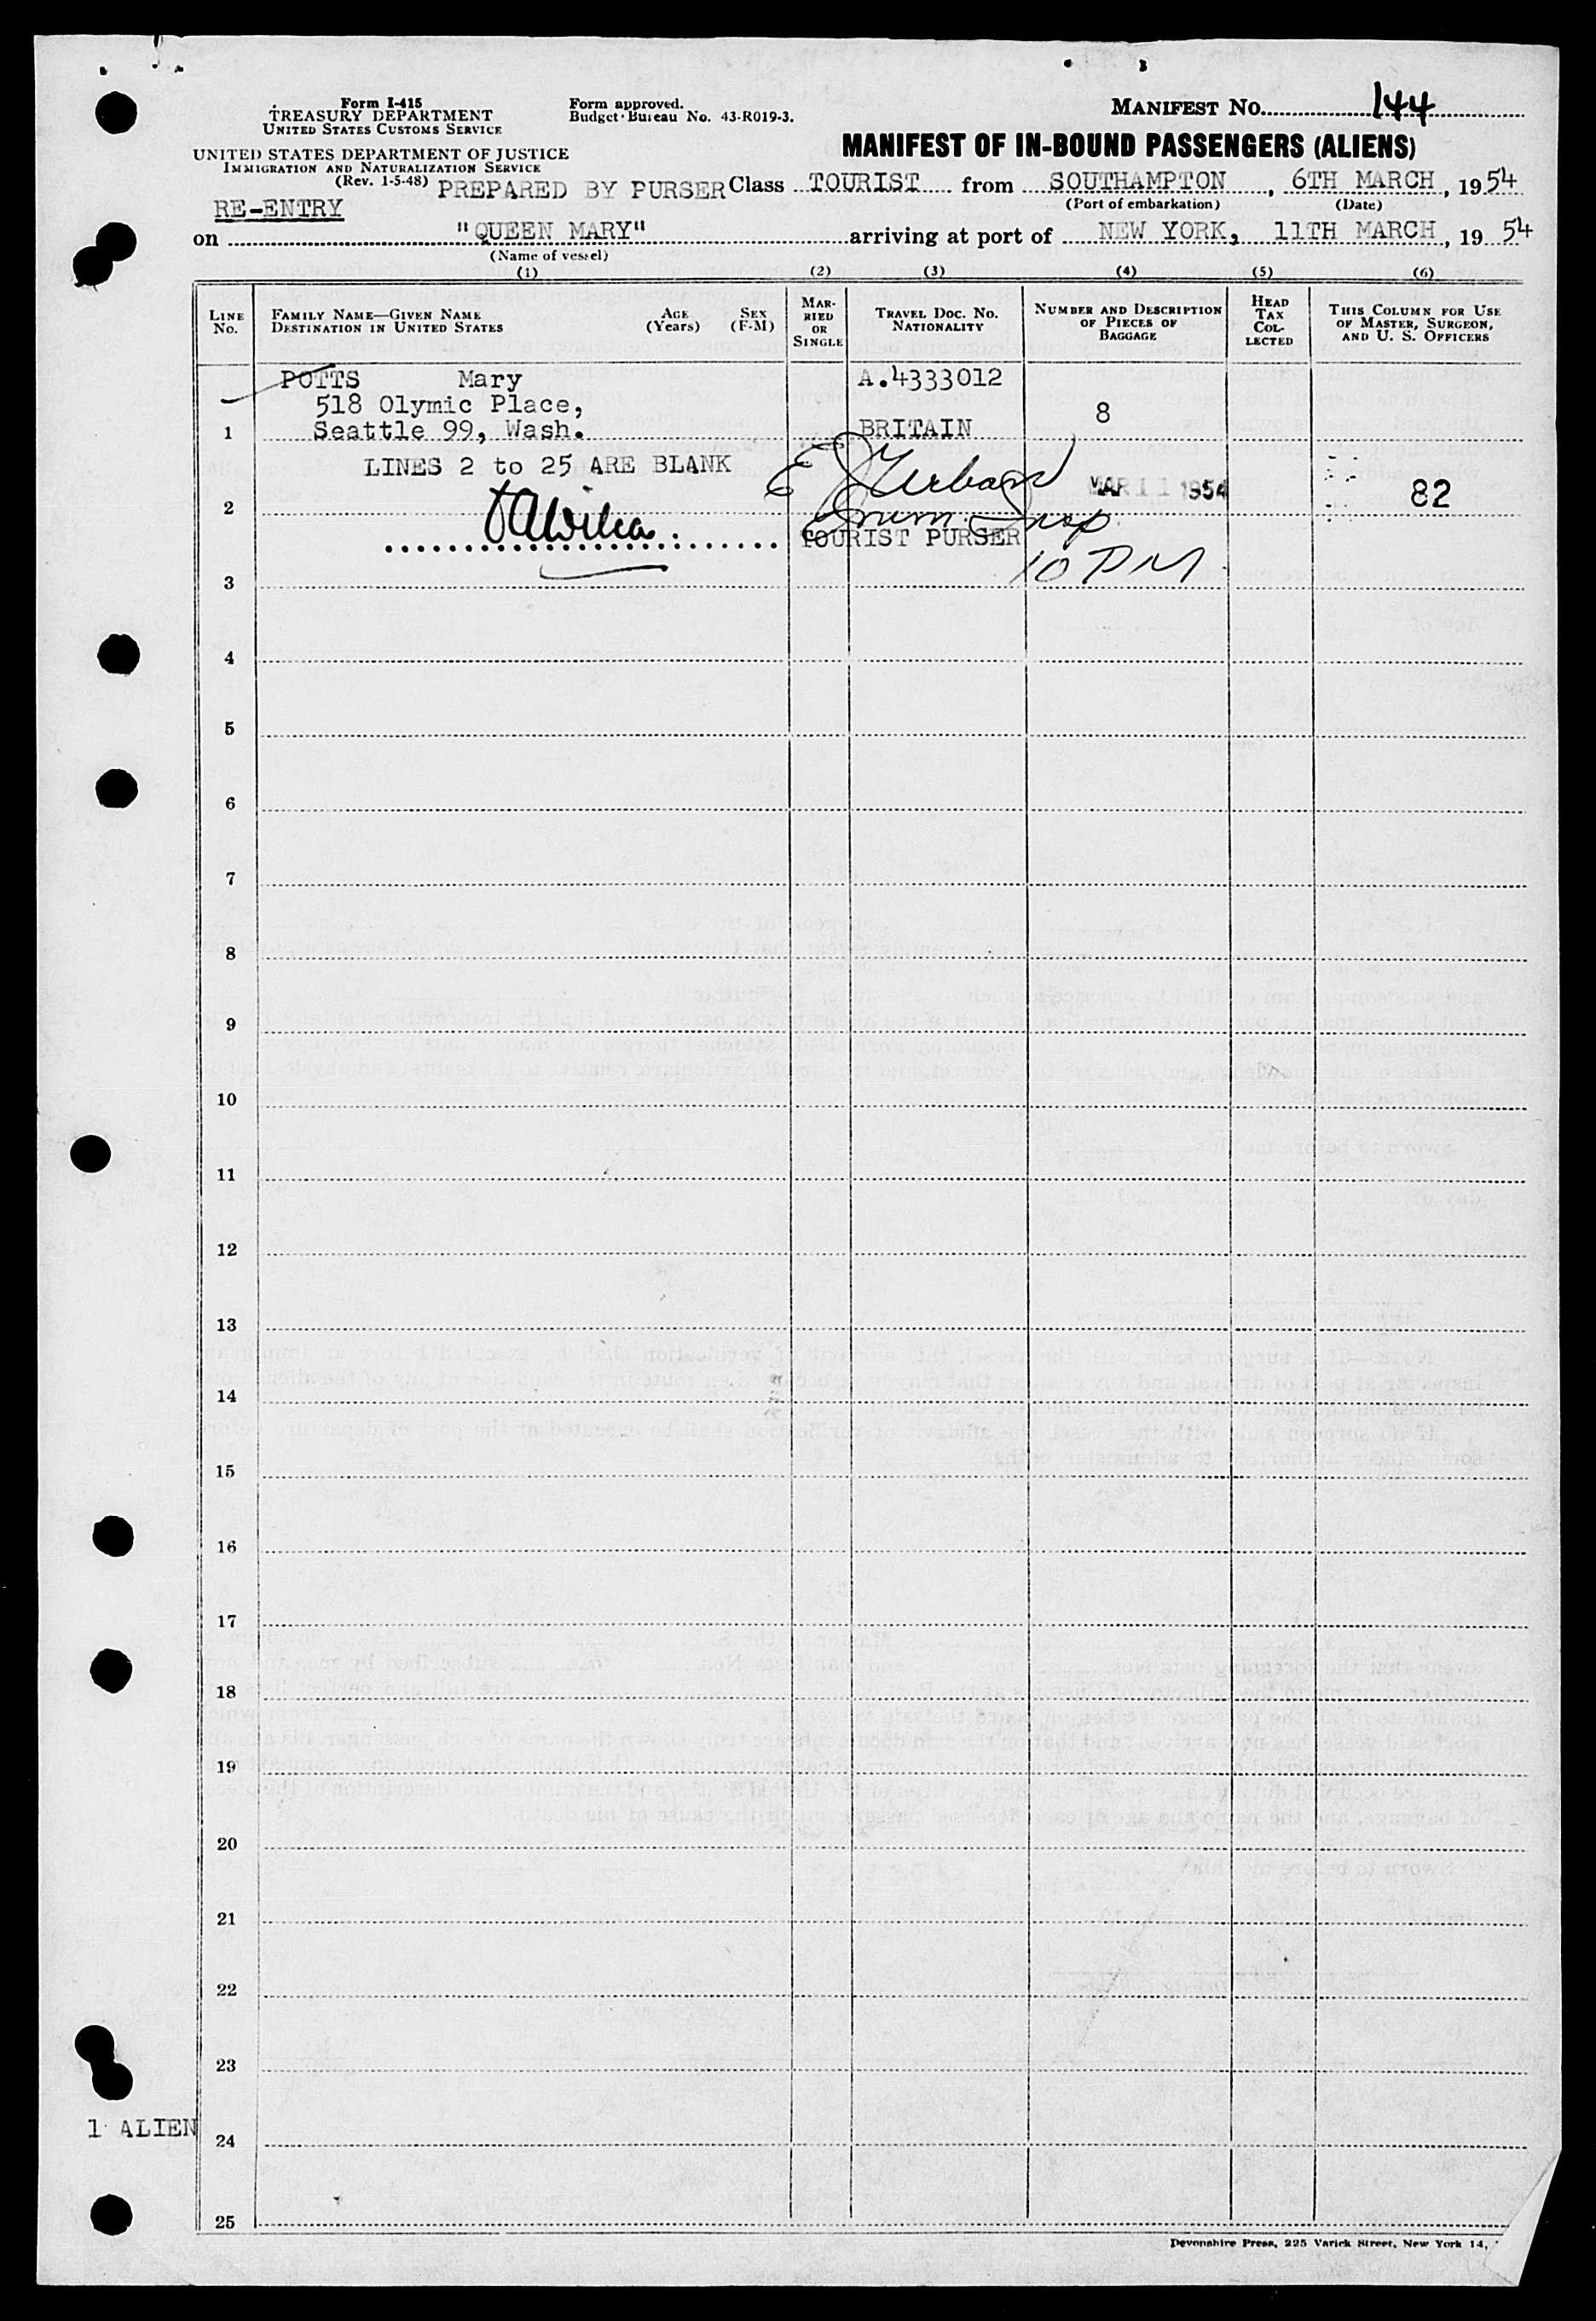 Form I-415
TREASURY DEPARTMENT
UNITED STATES CUSTOMS SERVICE
UNITED STATES DEPARTMENT OF JUSTICE
IMMIGRATION AND NATURALIZATION SERVICE
(Rev. 1-5-48)
Form approved.
Budget Bureau No. 43-R019-3.
MANIFEST NO. 144
MANIFEST OF IN-BOUND PASSENGERS (ALIENS)
PREPARED BY PURSER Class TOURIST from SOUTHAMPTON, 6TH MARCH, 1954
(Port of embarkation) (Date)
RE-ENTRY
on "QUEEN MARY" arriving at port of NEW YORK, 11TH MARCH, 1954
(Name of vessel)
(1) (2) (3) (4) (5) (6)
LINE No.
FAMILY NAME—GIVEN NAME
DESTINATION IN UNITED STATES
AGE (Years)
SEX (F-M)
MARRIED OR SINGLE
TRAVEL DOC. NO.
NATIONALITY
NUMBER AND DESCRIPTION OF PIECES OF BAGGAGE
HEAD TAX COLLECTED
THIS COLUMN FOR USE OF MASTER, SURGEON, AND U. S. OFFICERS
POTTS Mary A.4333012
518 Olymic Place, 8
1 Seattle 99, Wash. BRITAIN
LINES 2 to 25 ARE BLANK
MAR 11 1954 82
2
Immn. Insp
TOURIST PURSER
10 PM
3
4
5
6
7
8
9
10
11
12
13
14
15
16
17
18
19
20
21
22
23
1 ALIEN
24
25
Devonshire Press, 225 Varick Street, New York 14,